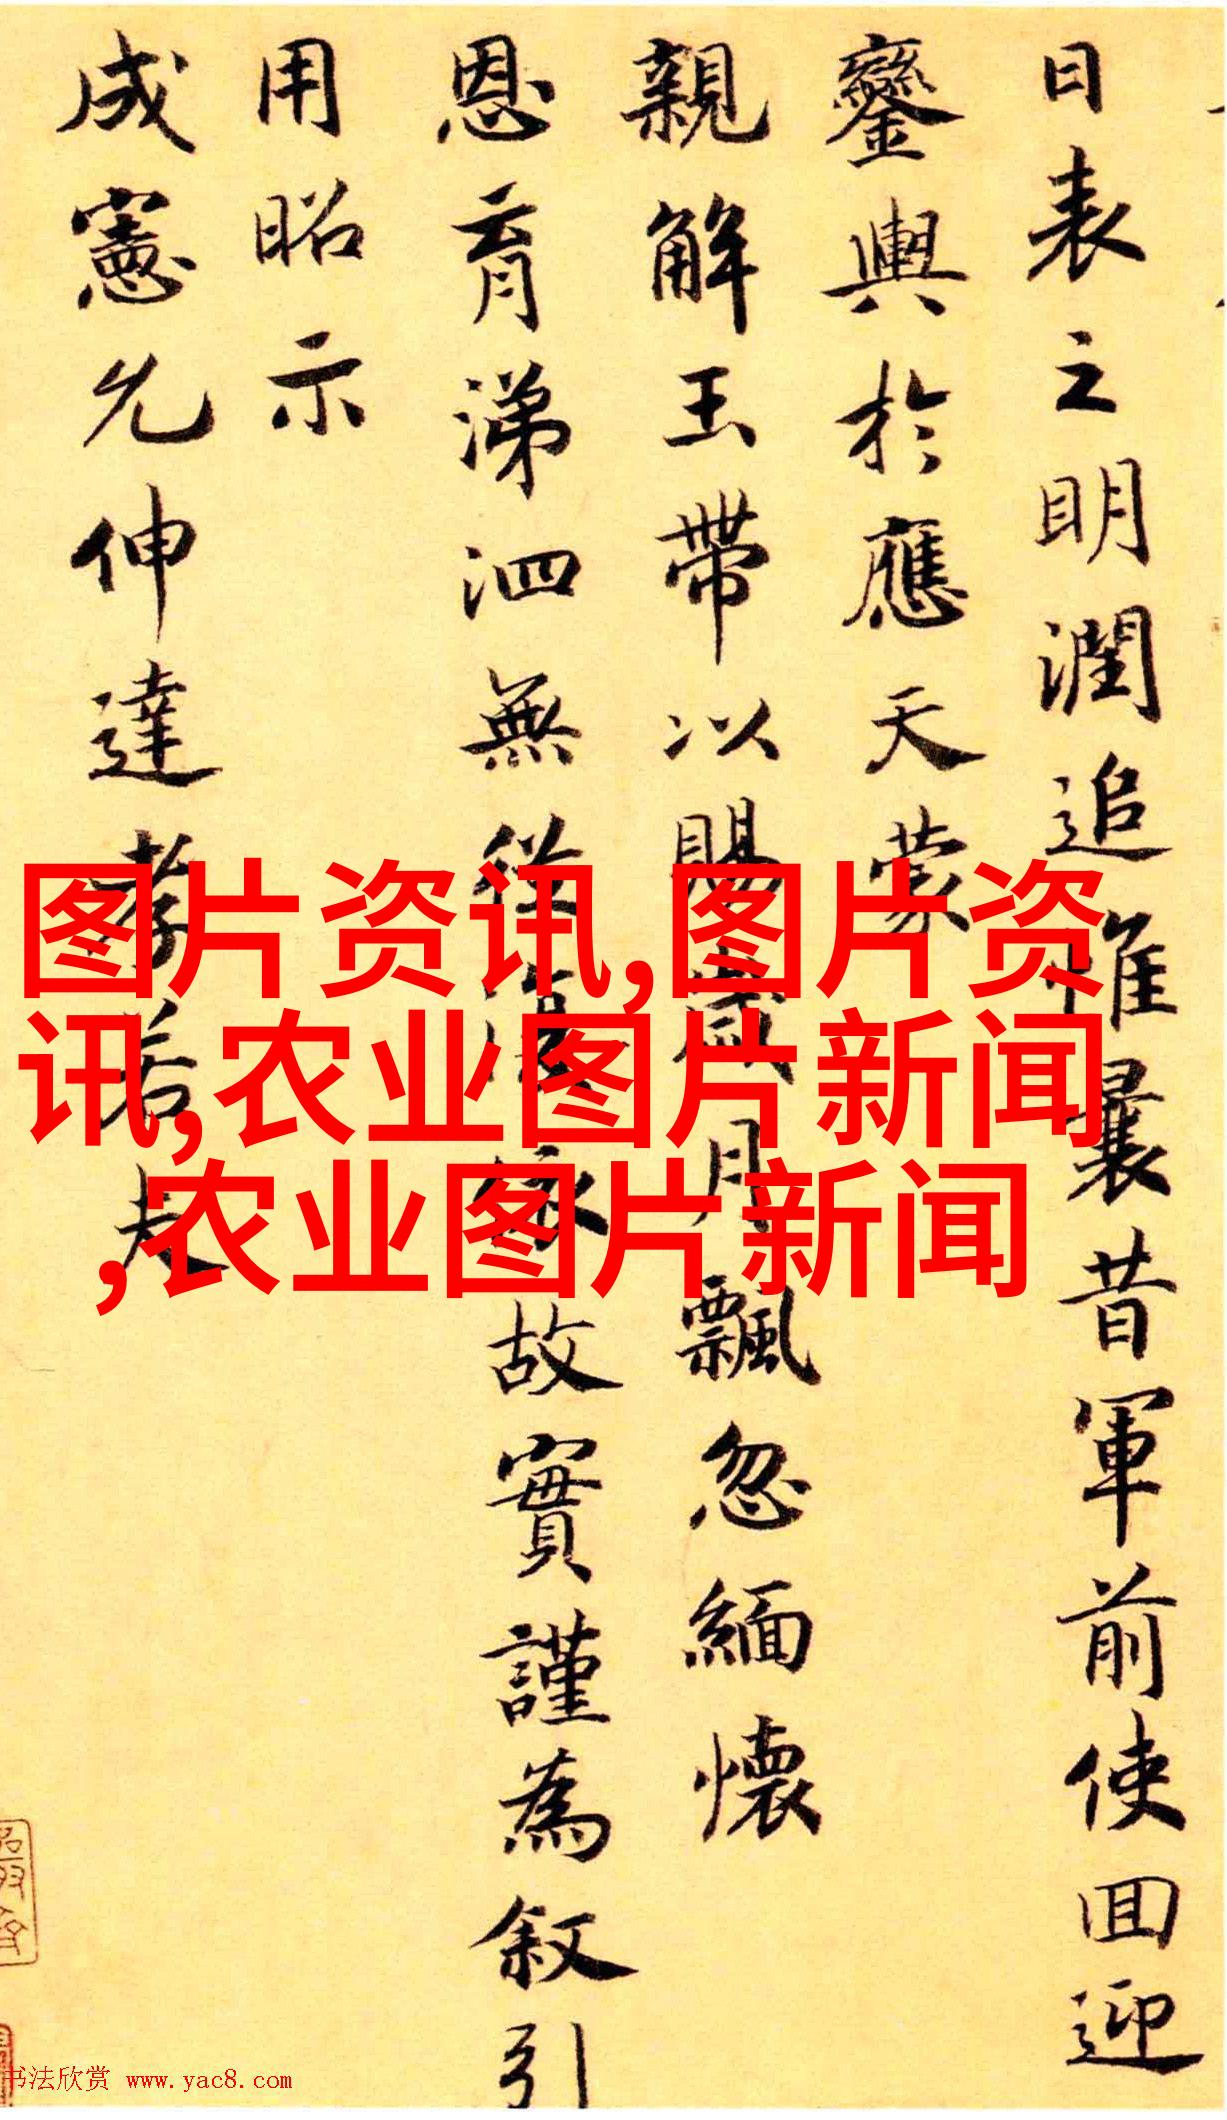 日表之明潤追惟曩昔軍前使囬迎
鑾輿於應天蒙
親解玉帶以賜歲月飄忽緬懷
恩育涕泗無從詠故實謹為叙引
用昭示
成憲允伸達孝若夫
图片资讯,图片资
讯,农业图片新闻
,农业图片新闻
书法欣赏 www.yac8.com